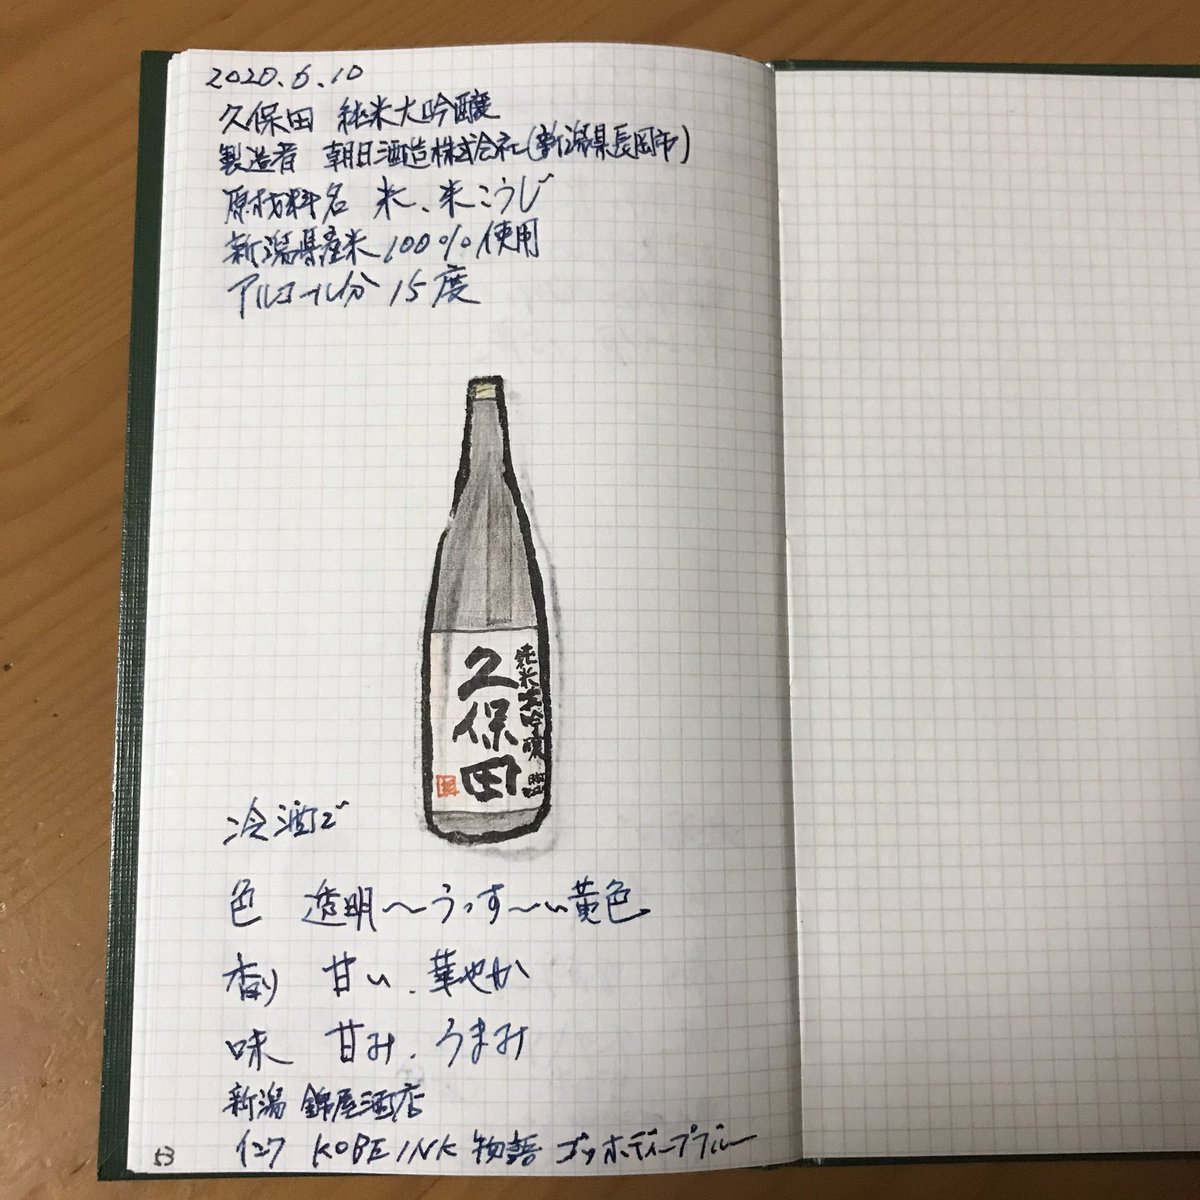 2020.6.10
久保田 純米大吟醸
製造者 朝日酒造株式会社(新潟県長岡市)
原材料名 米、米こうじ
新潟県産米100%使用
アルコール分 15度
久保田
純米大吟醸
冷酒で
色 透明〜うっす〜い黄色
香り 甘い、華やか
味 甘み、うまみ
新潟 錦屋酒店
インク KOBE INK 物語 ゴッホディープブルー
53